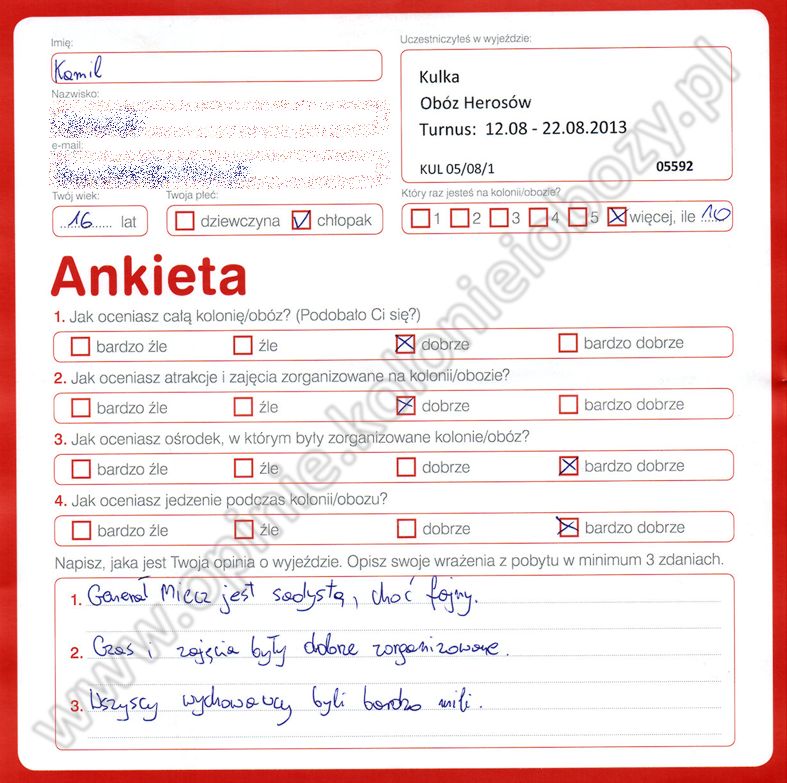 Imię:
Kamil
Nazwisko:
e-mail:
Twój wiek:
16 lat
Twoja płeć:
dziewczyna chłopak
Uczestniczyłeś w wyjeździe:
Kulka
Obóz Herosów
Turnus: 12.08 - 22.08.2013
KUL 05/08/1 05592
Który raz jesteś na kolonii/obozie?
1 2 3 4 5 więcej, ile 10
Ankieta
1. Jak oceniasz całą kolonię/obóz? (Podobało Ci się?)
bardzo źle źle dobrze bardzo dobrze
2. Jak oceniasz atrakcje i zajęcia zorganizowane na kolonii/obozie?
bardzo źle źle dobrze bardzo dobrze
3. Jak oceniasz ośrodek, w którym były zorganizowane kolonie/obóz?
bardzo źle źle dobrze bardzo dobrze
4. Jak oceniasz jedzenie podczas kolonii/obozu?
bardzo źle źle dobrze bardzo dobrze
Napisz, jaka jest Twoja opinia o wyjeździe. Opisz swoje wrażenia z pobytu w minimum 3 zdaniach.
1. Generał Miecz jest sadystą, choć fajny.
2. Czas i zajęcia były dobrze zorganizowane.
3. Wszyscy wychowawcy byli bardzo mili.
www.opinie.kolonieiobozy.pl